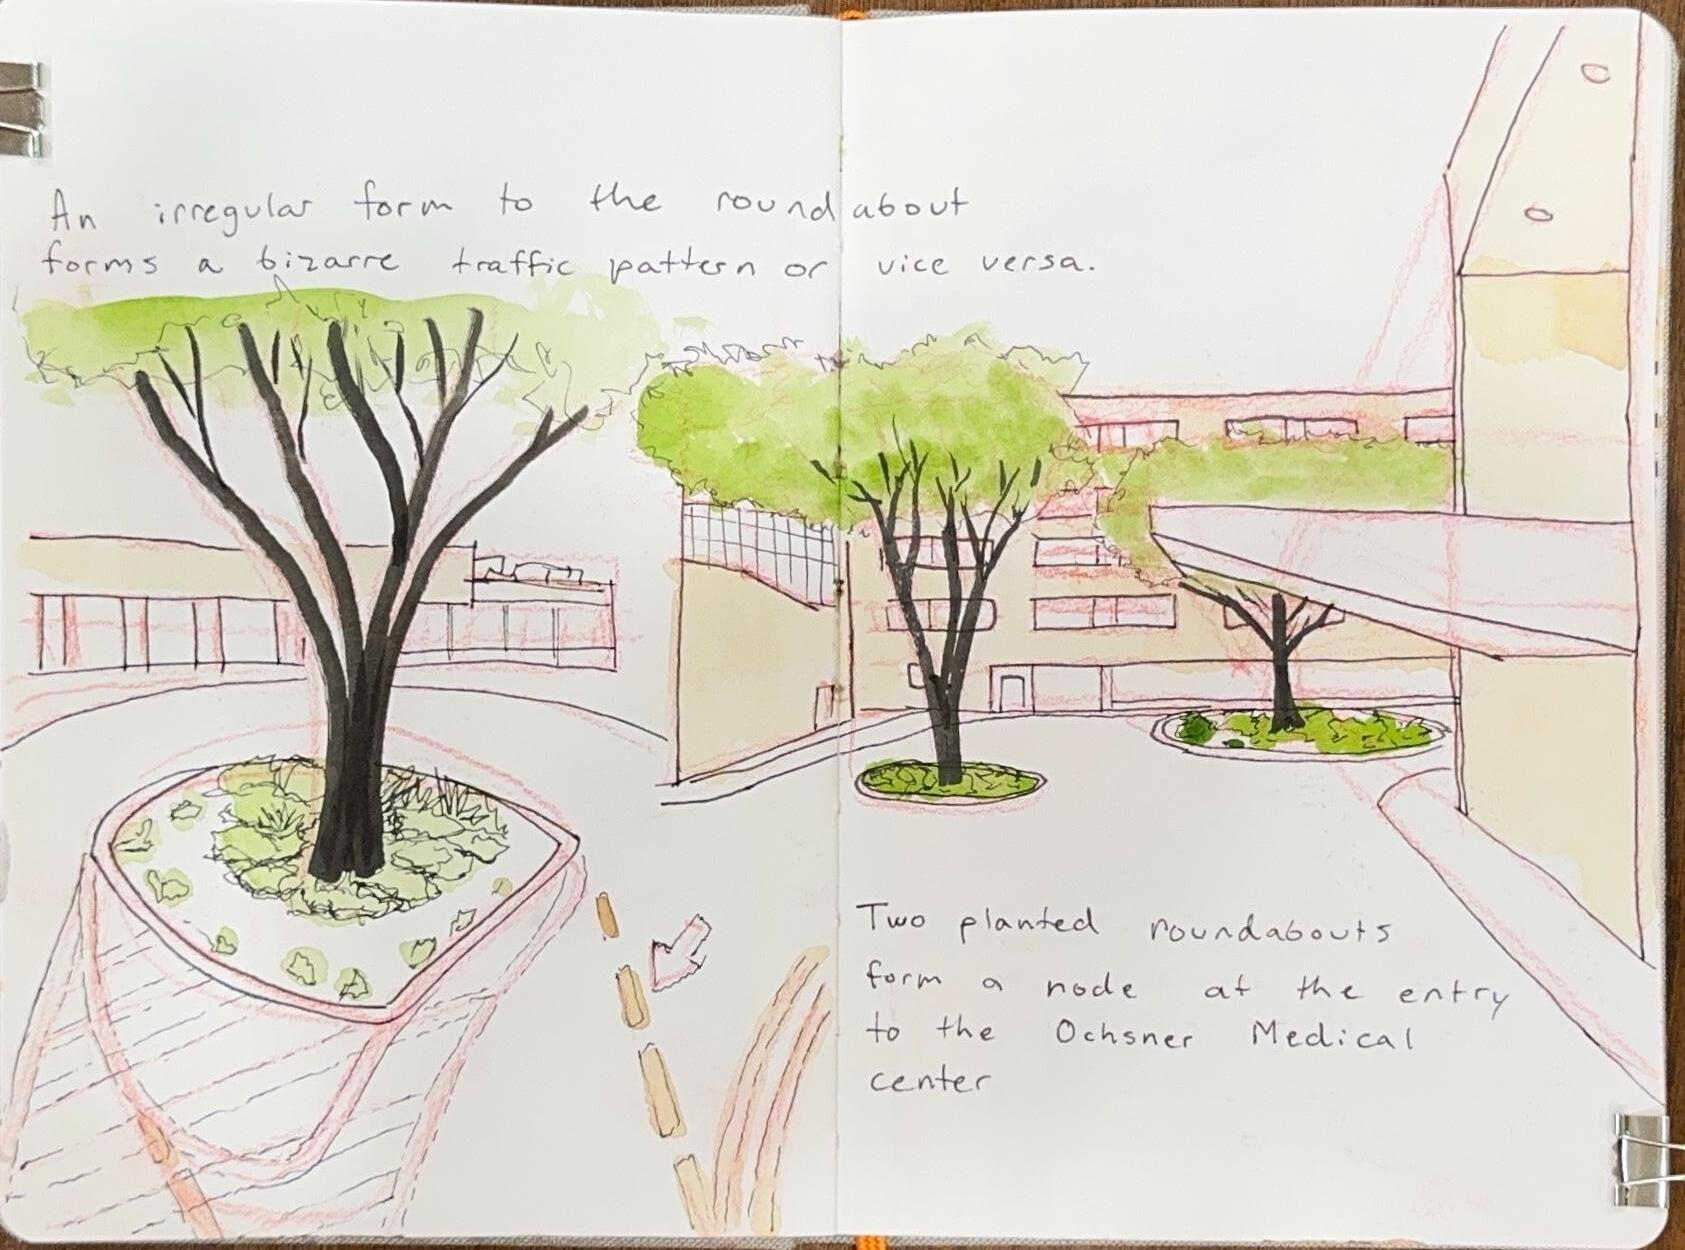 An irregular form to the roundabout
forms a bizarre traffic pattern or vice versa.
Two planted roundabouts
form a node at the entry
to the Ochsner Medical
center